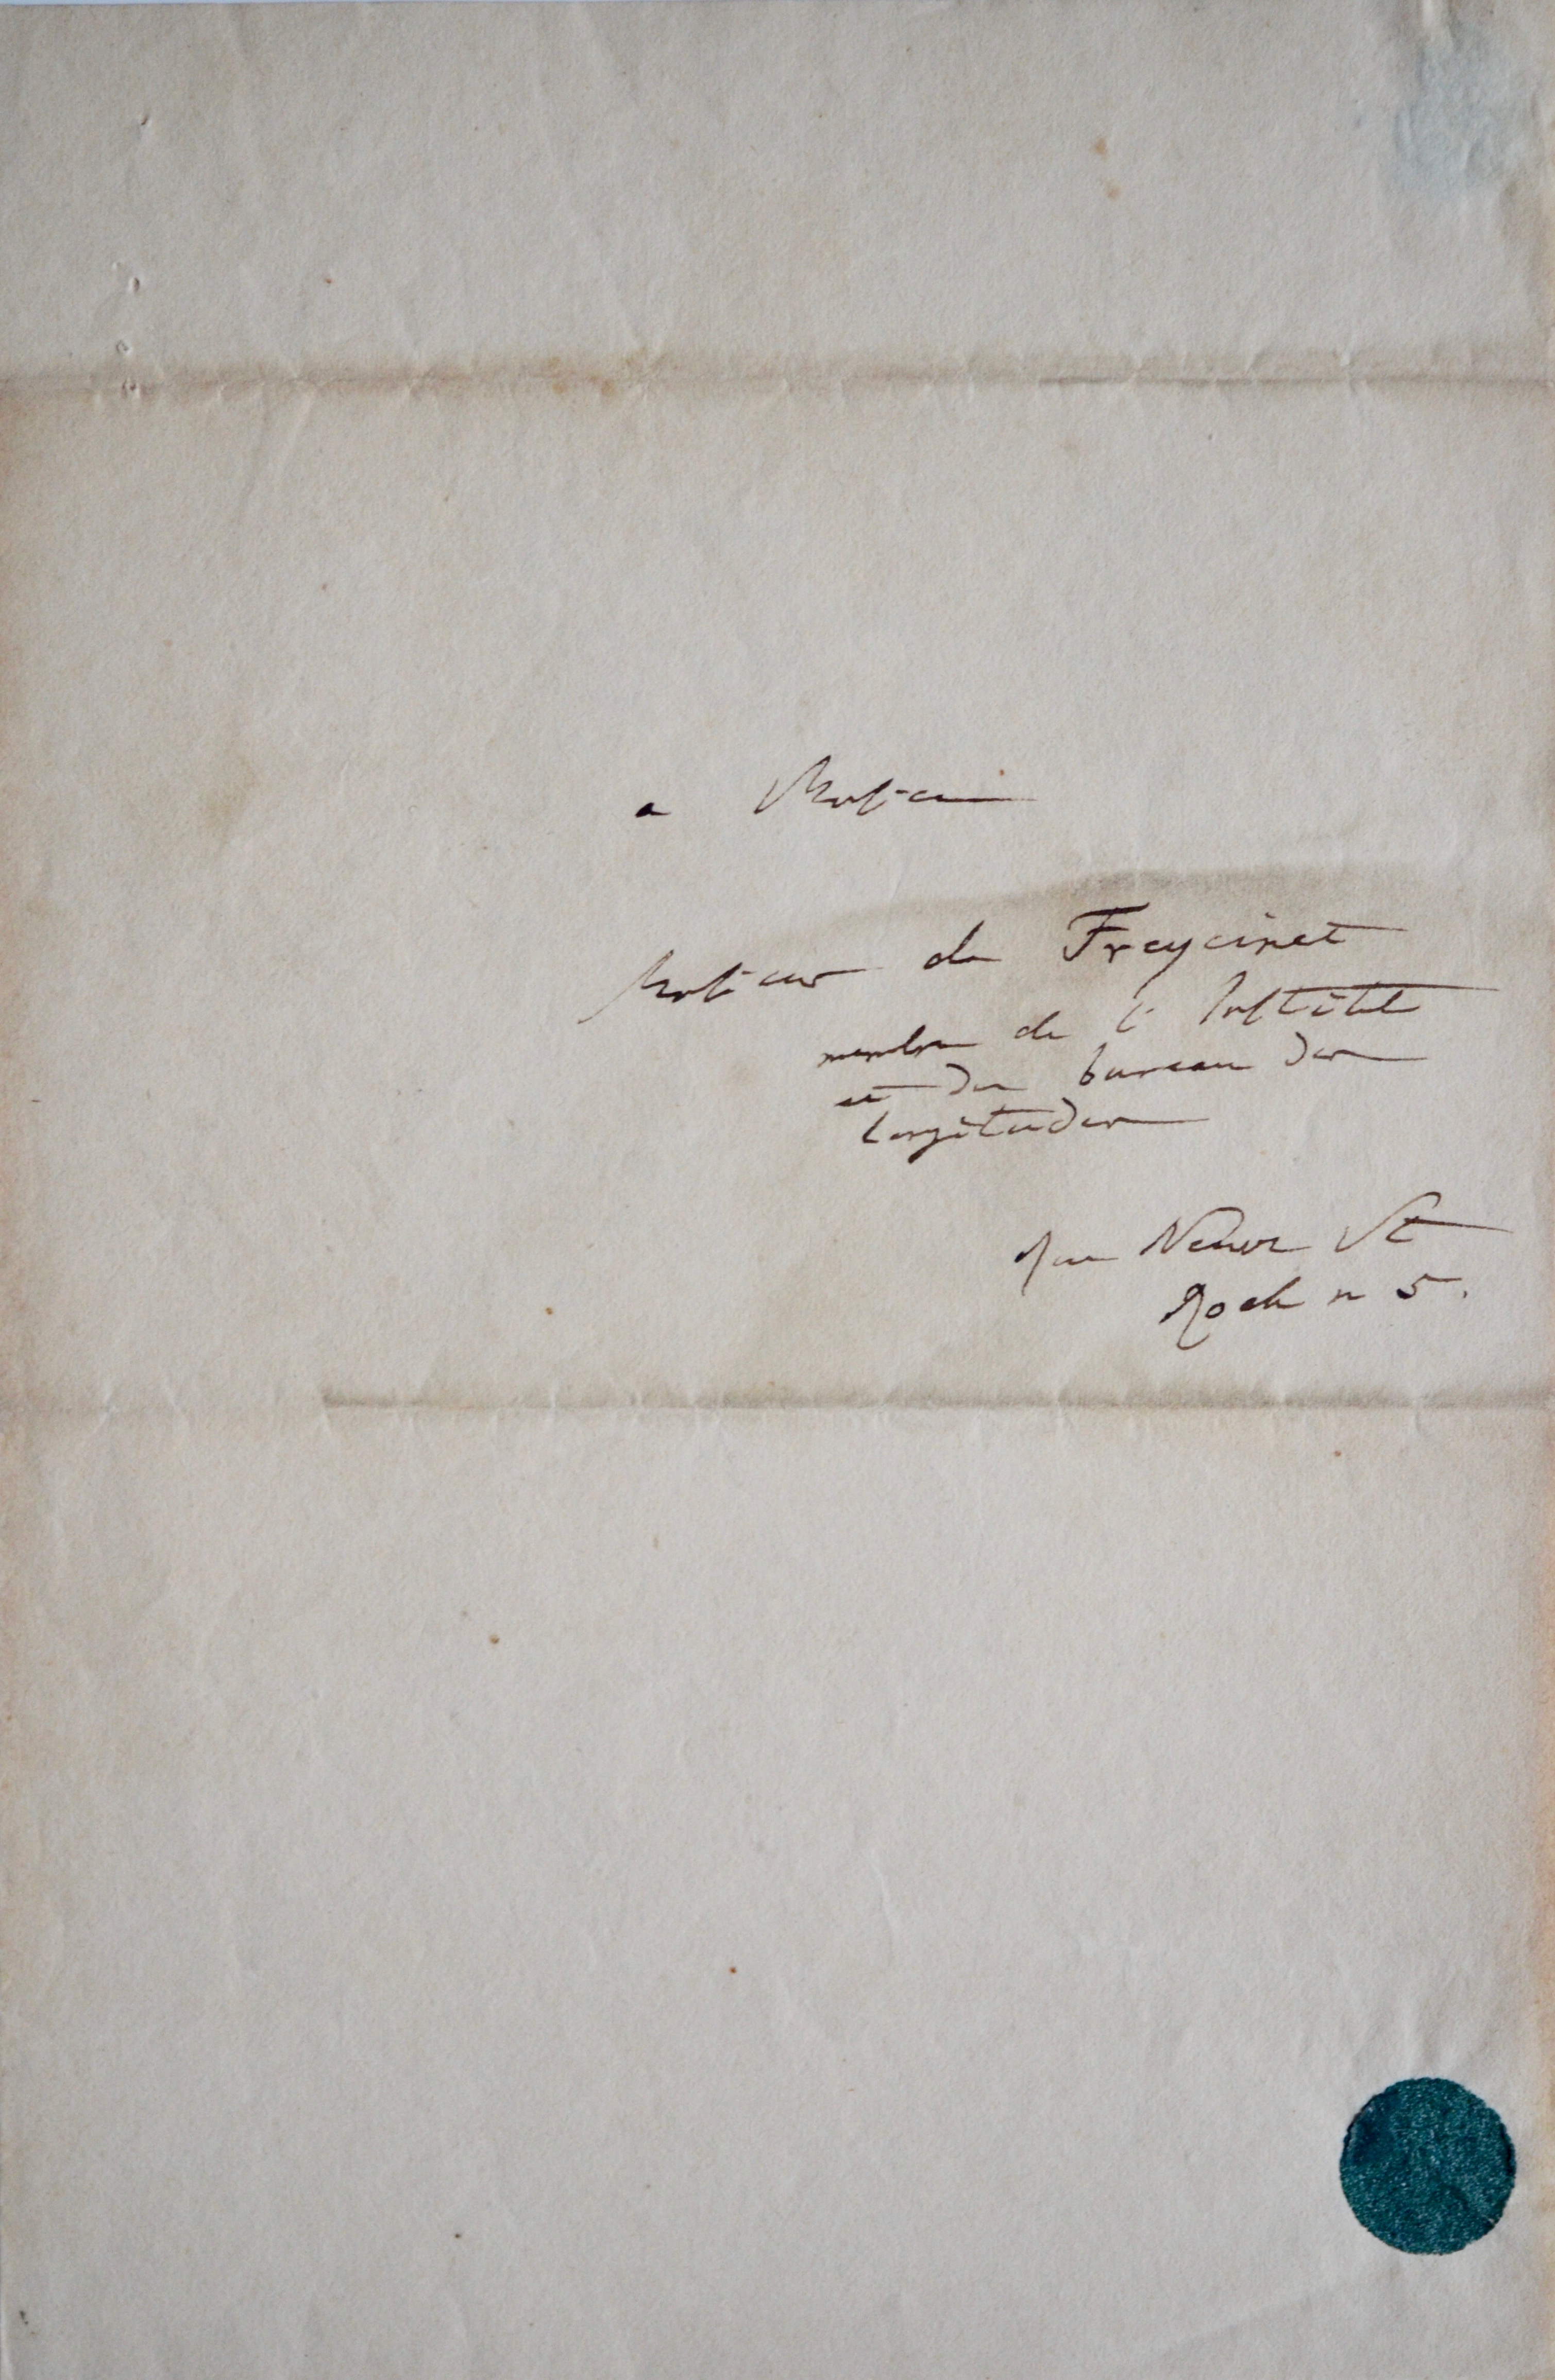 a Monsieur
Monsieur de Freycinet
membre de l'Institut
et du bureau des
longitudes
Rue Neuve St
Roch n 5.